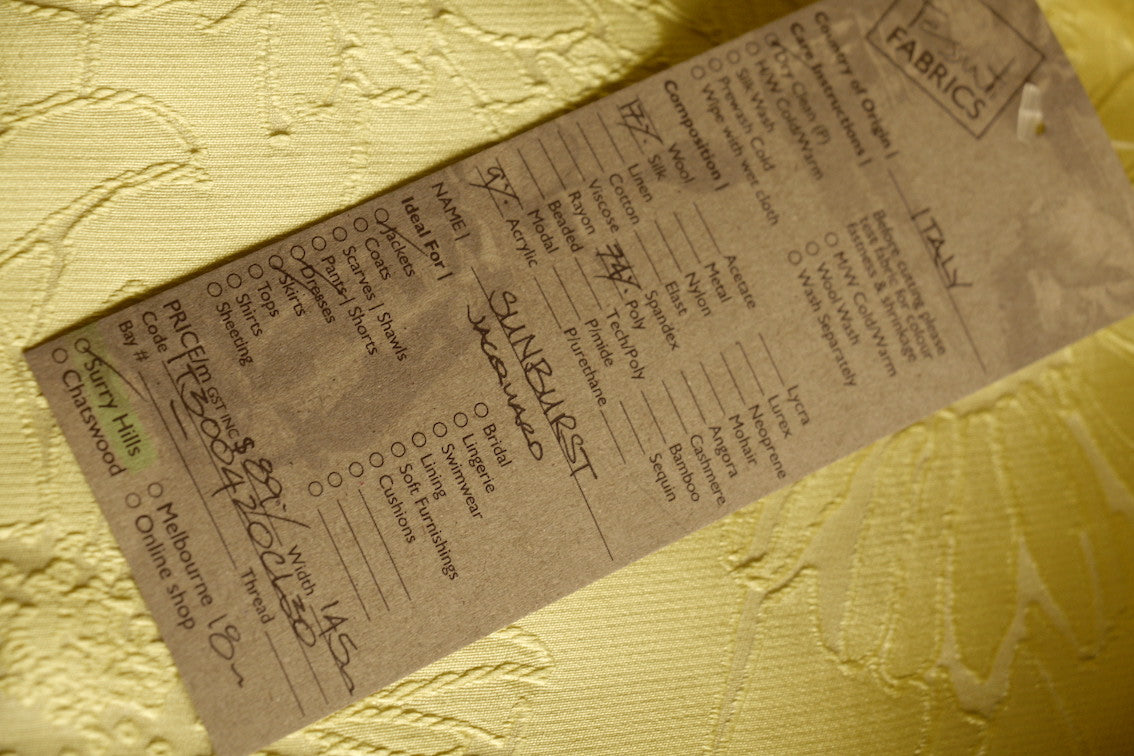 FABRICS
Country of Origin | ITALY
Care Instructions |
Dry Clean (P)
H/W Cold/Warm
Silk Wash
Prewash Cold
Wipe with wet cloth
Before cutting please
test fabric for colour
fastness & shrinkage
MW Cold/Warm
Wool Wash
Wash Separately
Composition |
Wool
17% Silk
Linen
Cotton
Viscose
Rayon
Beaded
Modal
9% Acrylic
Acetate
Metal
Nylon
Elast
Spandex
74% Poly
Tech/Poly
P/mide
P/urethane
Lycra
Lurex
Neoprene
Mohair
Angora
Cashmere
Bamboo
Sequin
NAME | SUNBURST
JACQUARD
Ideal For |
Jackets
Coats
Scarves | Shawls
Pants | Shorts
Dresses
Skirts
Tops
Shirts
Sheeting
Bridal
Lingerie
Swimwear
Lining
Soft Furnishings
Cushions
PRICE/m GST INC $ 89.-/ Width 145
Code
Bay # Thread
Surry Hills
Chatswood
Melbourne
Online shop
18m